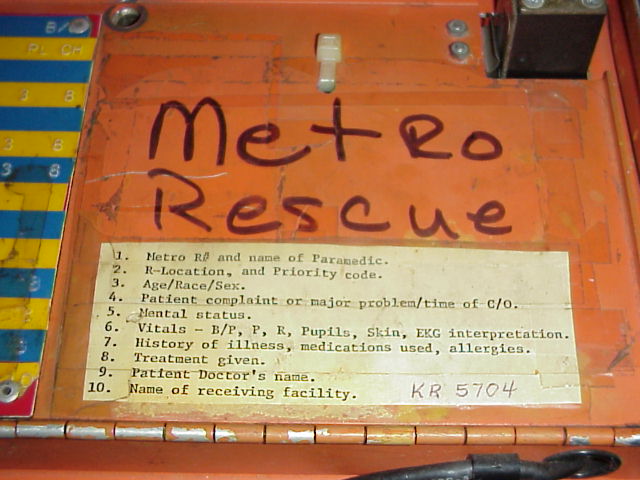 B/
PL CH
3 8
3 8
3 8
Metro
Rescue
1. Metro R# and name of Paramedic.
2. R-Location, and Priority code.
3. Age/Race/Sex.
4. Patient complaint or major problem/time of C/O.
5. Mental status.
6. Vitals - B/P, P, R, Pupils, Skin, EKG interpretation.
7. History of illness, medications used, allergies.
8. Treatment given.
9. Patient Doctor's name.
10. Name of receiving facility.
KR 5704